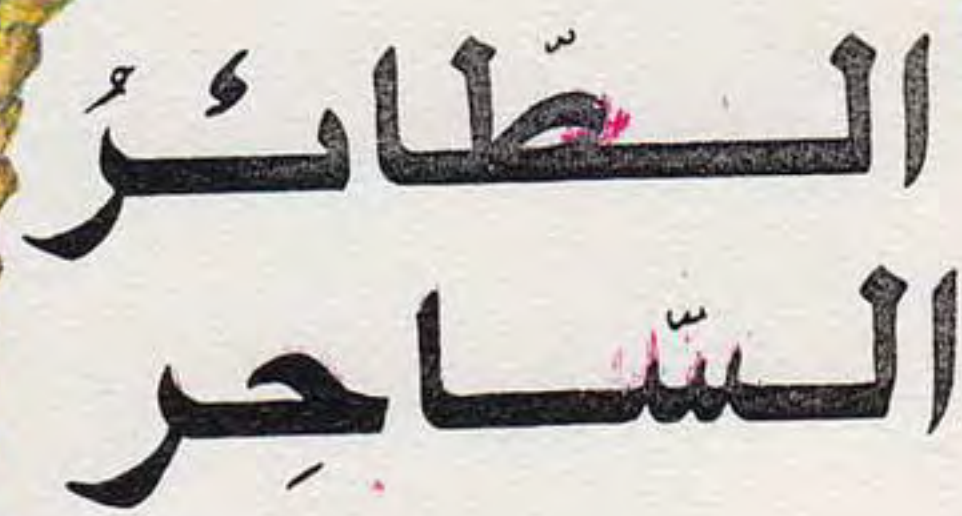 الطّائرُ
السّاحِر